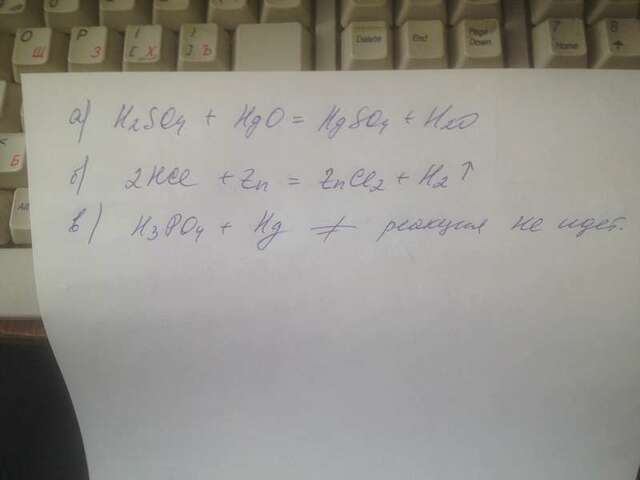 О Ш
Р З
[ Х
] Ъ
Delete
End
Page Down
7 Home
8
Б
а) H2SO4 + HgO = HgSO4 + H2O
б) 2HCl + Zn = ZnCl2 + H2↑
в) H3PO4 + Hg ≠ реакция не идет.